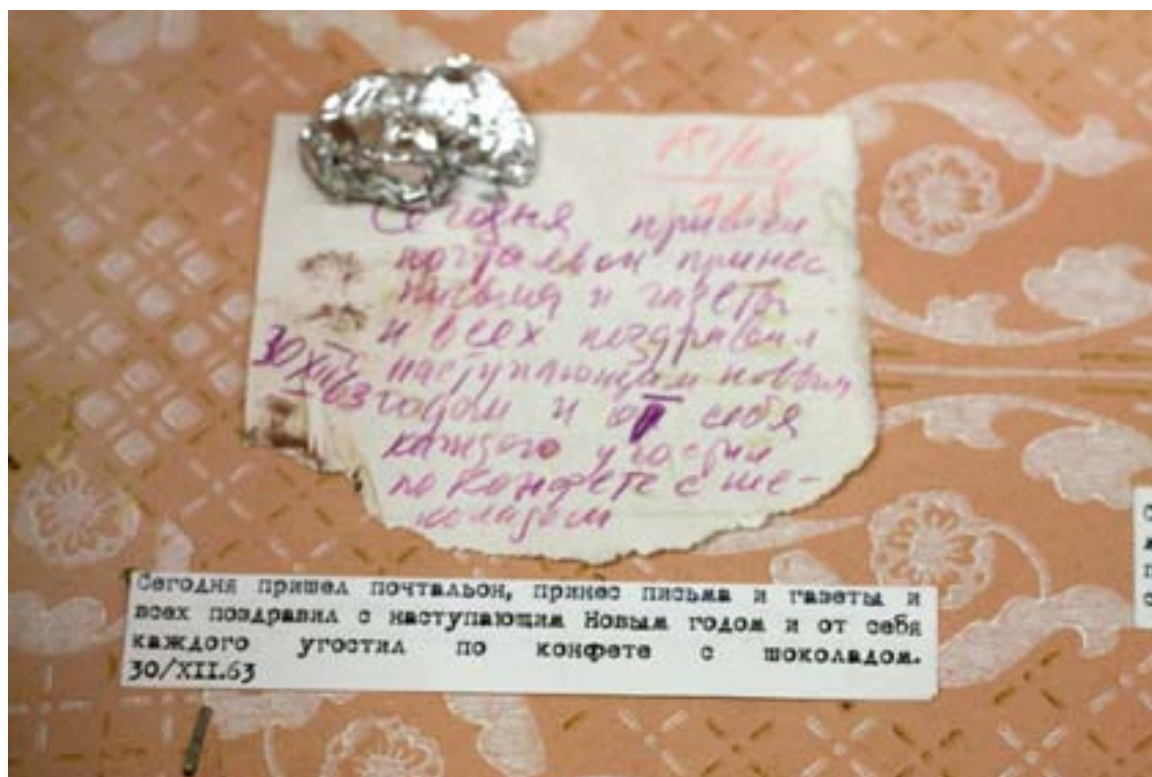 Сегодня пришел
почтальон принес
письма и газеты
и всех поздравил
30/XII 63
наступающим новым
годом и от себя
каждого угостил
по конфете с ше-
коладом
Сегодня пришел почтальон, принес письма и газеты и
всех поздравил с наступающим Новым годом и от себя
каждого угостил по конфете с шоколадом.
30/XII.63